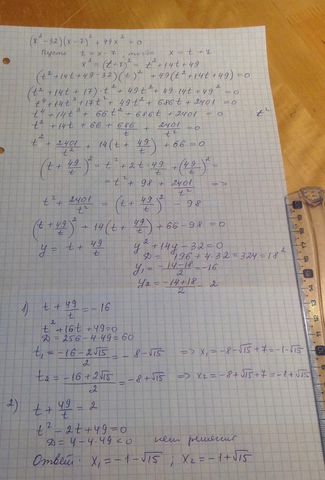 (x²-32)(x-7)² + 49x² = 0
Пусть t = x-7, тогда x = t+7
x² = (t+7)² = t² + 14t + 49
(t² + 14t + 49 - 32)(t)² + 49(t² + 14t + 49) = 0
(t² + 14t + 17)·t² + 49t² + 49·14t + 49² = 0
t⁴ + 14t³ + 17t² + 49t² + 686t + 2401 = 0
t⁴ + 14t³ + 66t² + 686t + 2401 = 0 t²
t² + 14t + 66 + 686/t + 2401/t² = 0
t² + 2401/t² + 14(t + 49/t) + 66 = 0
(t + 49/t)² = t² + 2t·49/t + (49/t)² =
= t² + 98 + 2401/t² =>
t² + 2401/t² = (t + 49/t)² - 98
(t + 49/t)² + 14(t + 49/t) + 66 - 98 = 0
y = t + 49/t y² + 14y - 32 = 0
D = 196 + 4·32 = 324 = 18²
y₁ = (-14-18)/2 = -16
y₂ = (-14+18)/2 = 2
1) t + 49/t = -16
t² + 16t + 49 = 0
D = 256 - 4·49 = 60
t₁ = (-16 - 2√15)/2 = -8 - √15 => x₁ = -8 - √15 + 7 = -1 - √15
t₂ = (-16 + 2√15)/2 = -8 + √15 => x₂ = -8 + √15 + 7 = -1 + √15
2) t + 49/t = 2
t² - 2t + 49 = 0
D = 4 - 4·49 < 0 нет решения
Ответ: x₁ = -1 - √15 ; x₂ = -1 + √15